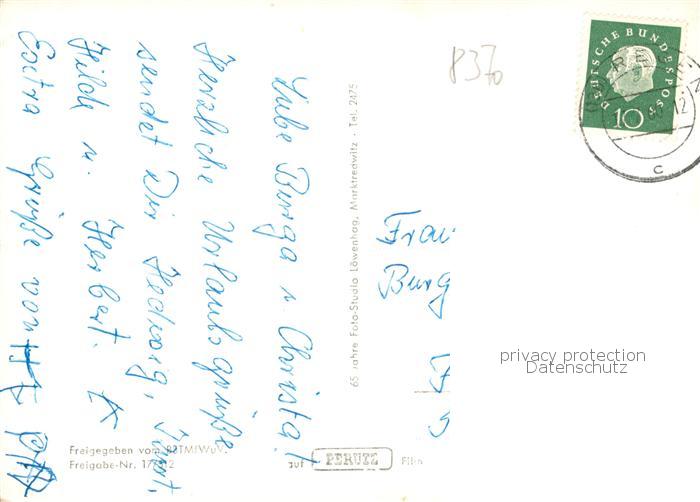 Liebe Burga u. Christa!
Herzliche Urlaubsgrüße
sendet Dir Hedwig, Kurt,
Hilde u. Herbert.
Extra Grüße von
65 Jahre Foto-Studio Löwenhag, Marktredwitz · Tel. 2475
Frau
Burg
8370
DEUTSCHE BUNDESPOST
10
12
c
privacy protection
Datenschutz
Freigegeben vom BSTMfWuV.
Freigabe-Nr.
auf PERUTZ Film